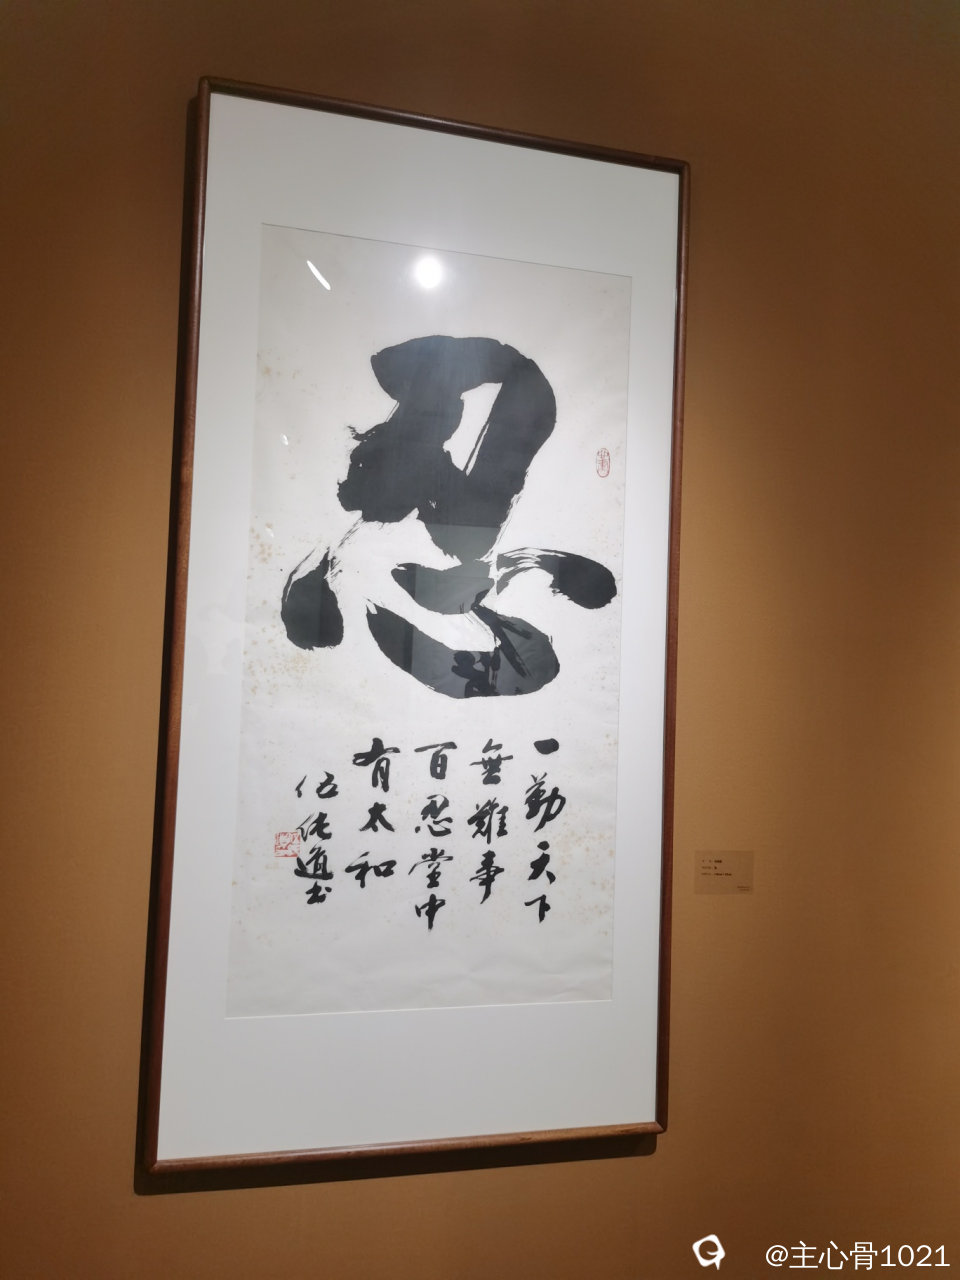 忍
一勤天下
無難事
百忍堂中
有太和
伍純道书
@主心骨1021